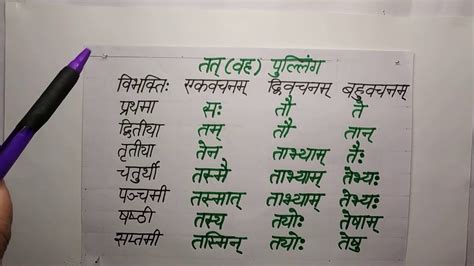 तत् (वह) पुल्लिंग
विभक्तिः एकवचनम् द्विवचनम् बहुवचनम्
प्रथमा सः तौ ते
द्वितीया तम् तौ तान्
तृतीया तेन ताभ्याम् तैः
चतुर्थी तस्मै ताभ्याम् तेभ्यः
पञ्चमी तस्मात् ताभ्याम् तेभ्यः
षष्ठी तस्य तयोः तेषाम्
सप्तमी तस्मिन् तयोः तेषु